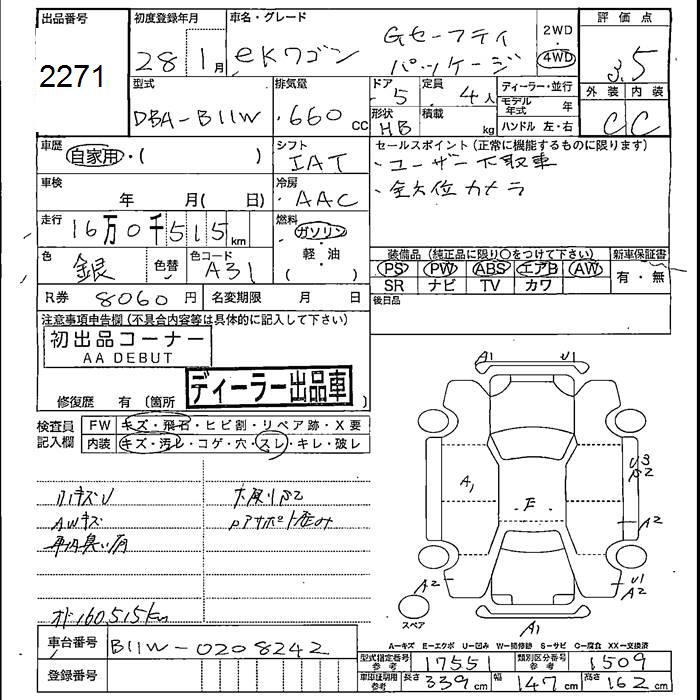 出品番号
2271
初度登録年月
28 1月
車名・グレード
eKワゴン
Gセーフティ
パッケージ
2WD
4WD
評価点
3.5
外装 内装
C C
型式
DBA-B11W
排気量
660cc
ドア 5
定員 4人
形状 HB
積載 kg
ディーラー・並行
モデル年式 年
ハンドル 左・右
車歴 自家用・( )
シフト
IAT
セールスポイント(正常に機能するものに限ります)
・ユーザー下取車
・全方位カメラ
車検 年 月( 日)
冷房
AAC
走行 16万0千515km
燃料
ガソリン
軽・油
( )
色 銀 色替
色コード A31
装備品(純正品に限り○をつけて下さい)
PS PW ABS エアB AW
SR ナビ TV カワ
新車保証書
有・無
R券 8060円
名変期限 月 日
後日品
注意事項申告欄(不具合内容等は具体的に記入して下さい)
初出品コーナー
AA DEBUT
ディーラー出品車
修復歴 有 〔箇所 〕
検査員記入欄
FW キズ・飛石・ヒビ割・リペア跡・X要
内装 キズ・汚レ・コゲ・穴・スレ・キレ・破レ
AWキズ
車内臭い有
オド160,515km
A1 U1
A1
E
U3
A2
A2
U1
A2
A1
スペア
A-キズ E-エクボ U-凹み W-補修跡 S-サビ C-腐食 XX-交換済
車台番号 B11W-0208242
登録番号
型式指定番号 参考 17551
類別区分番号 参考 1509
車庫証明用 参考 長さ 339cm 幅 147cm 高さ 162cm